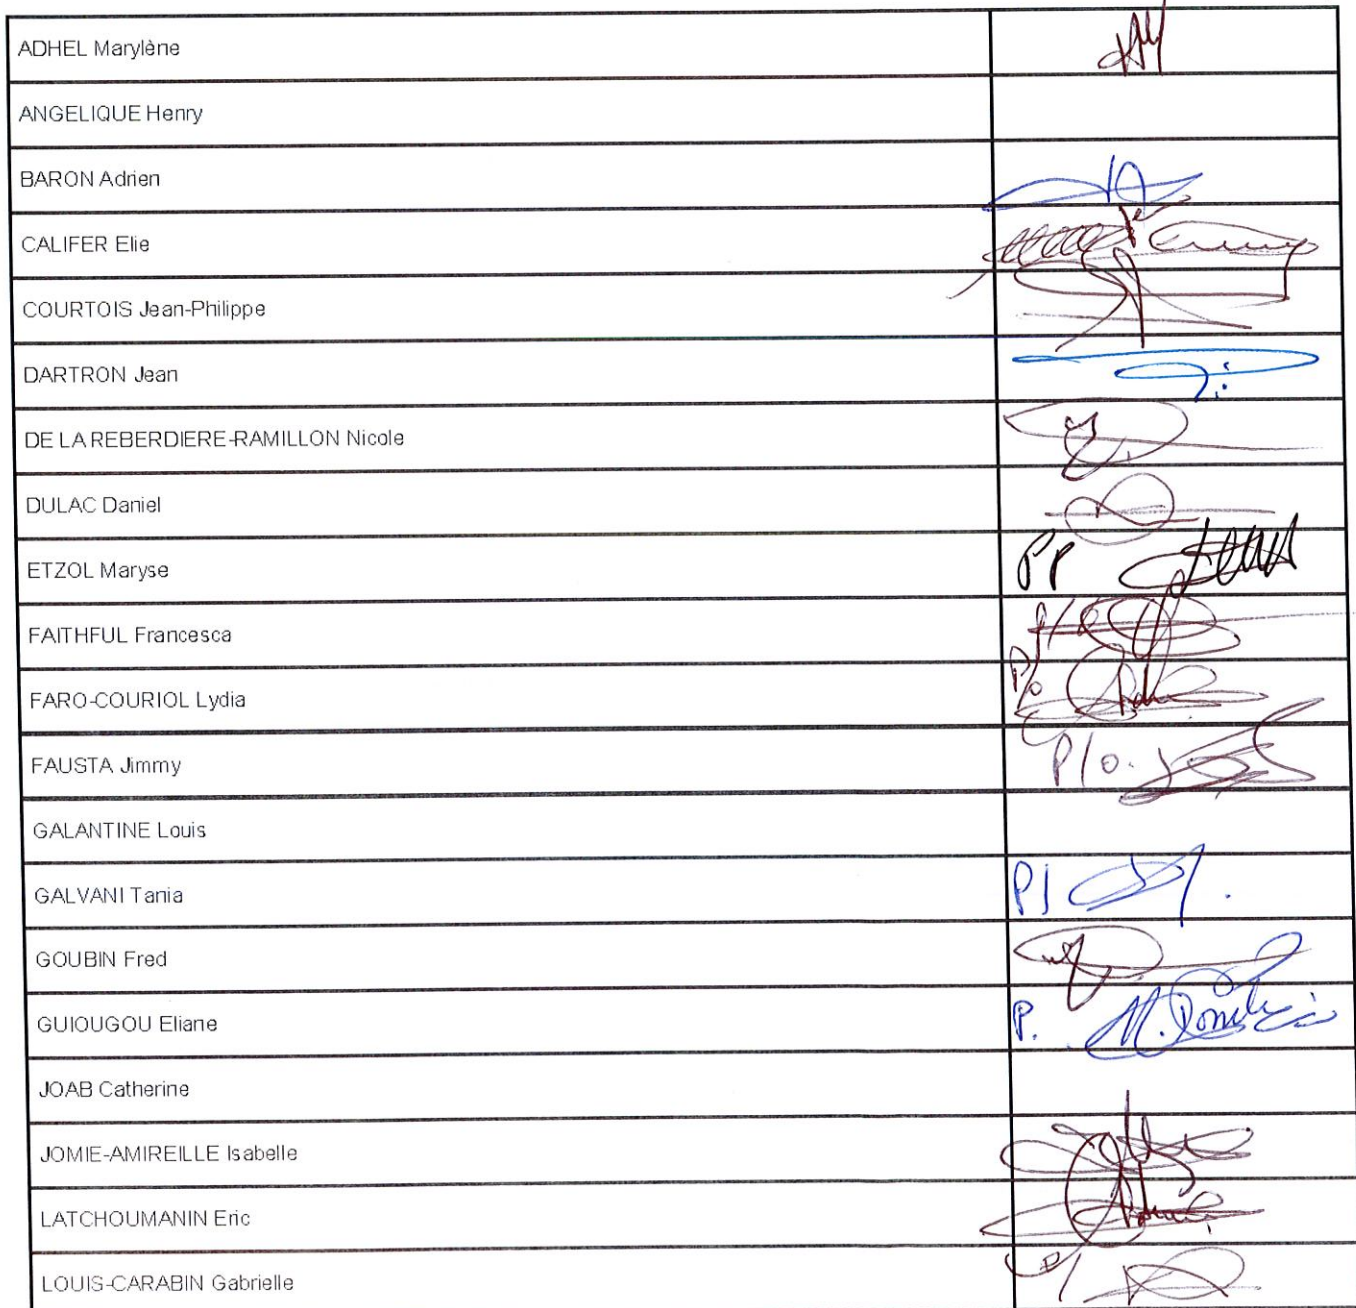 ADHEL Marylène
ANGELIQUE Henry
BARON Adrien
CALIFER Elie
COURTOIS Jean-Philippe
DARTRON Jean
DE LA REBERDIERE-RAMILLON Nicole
DULAC Daniel
ETZOL Maryse PP
FAITHFUL Francesca
FARO-COURIOL Lydia P/o
FAUSTA Jimmy P/o.
GALANTINE Louis
GALVANI Tania P/
GOUBIN Fred
GUIOUGOU Eliane P. M.
JOAB Catherine
JOMIE-AMIREILLE Isabelle
LATCHOUMANIN Eric
LOUIS-CARABIN Gabrielle P/